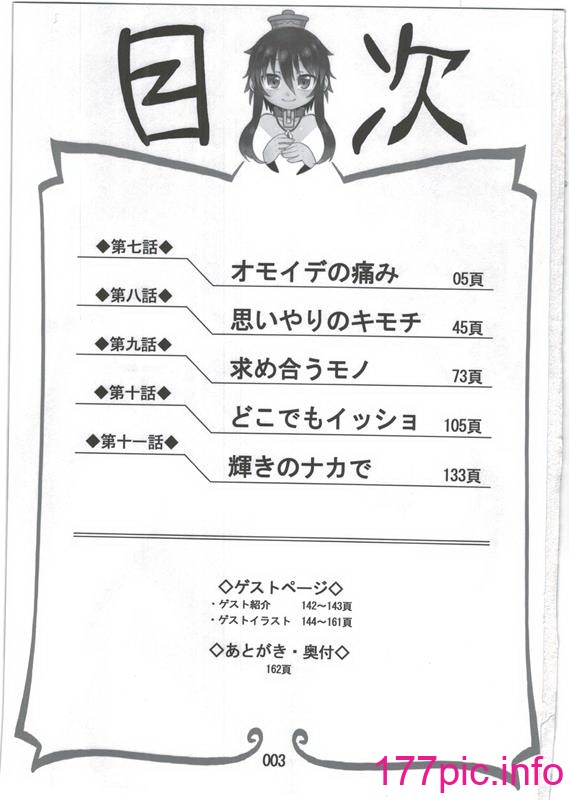 目次
◆第七話◆
オモイデの痛み 05頁
◆第八話◆
思いやりのキモチ 45頁
◆第九話◆
求め合うモノ 73頁
◆第十話◆
どこでもイッショ 105頁
◆第十一話◆
輝きのナカで 133頁
◇ゲストページ◇
・ゲスト紹介 142~143頁
・ゲストイラスト 144~161頁
◇あとがき・奥付◇
162頁
003
177pic.info